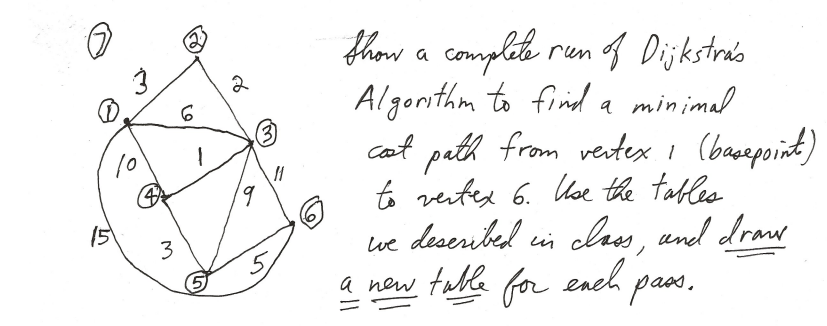 ⑦
②
3
2
①
6
③
10
1
11
④
9
⑥
15
3
5
⑤
Show a complete run of Dijkstra's
Algorithm to find a minimal
cost path from vertex 1 (basepoint)
to vertex 6. Use the tables
we described in class, and draw
a new table for each pass.